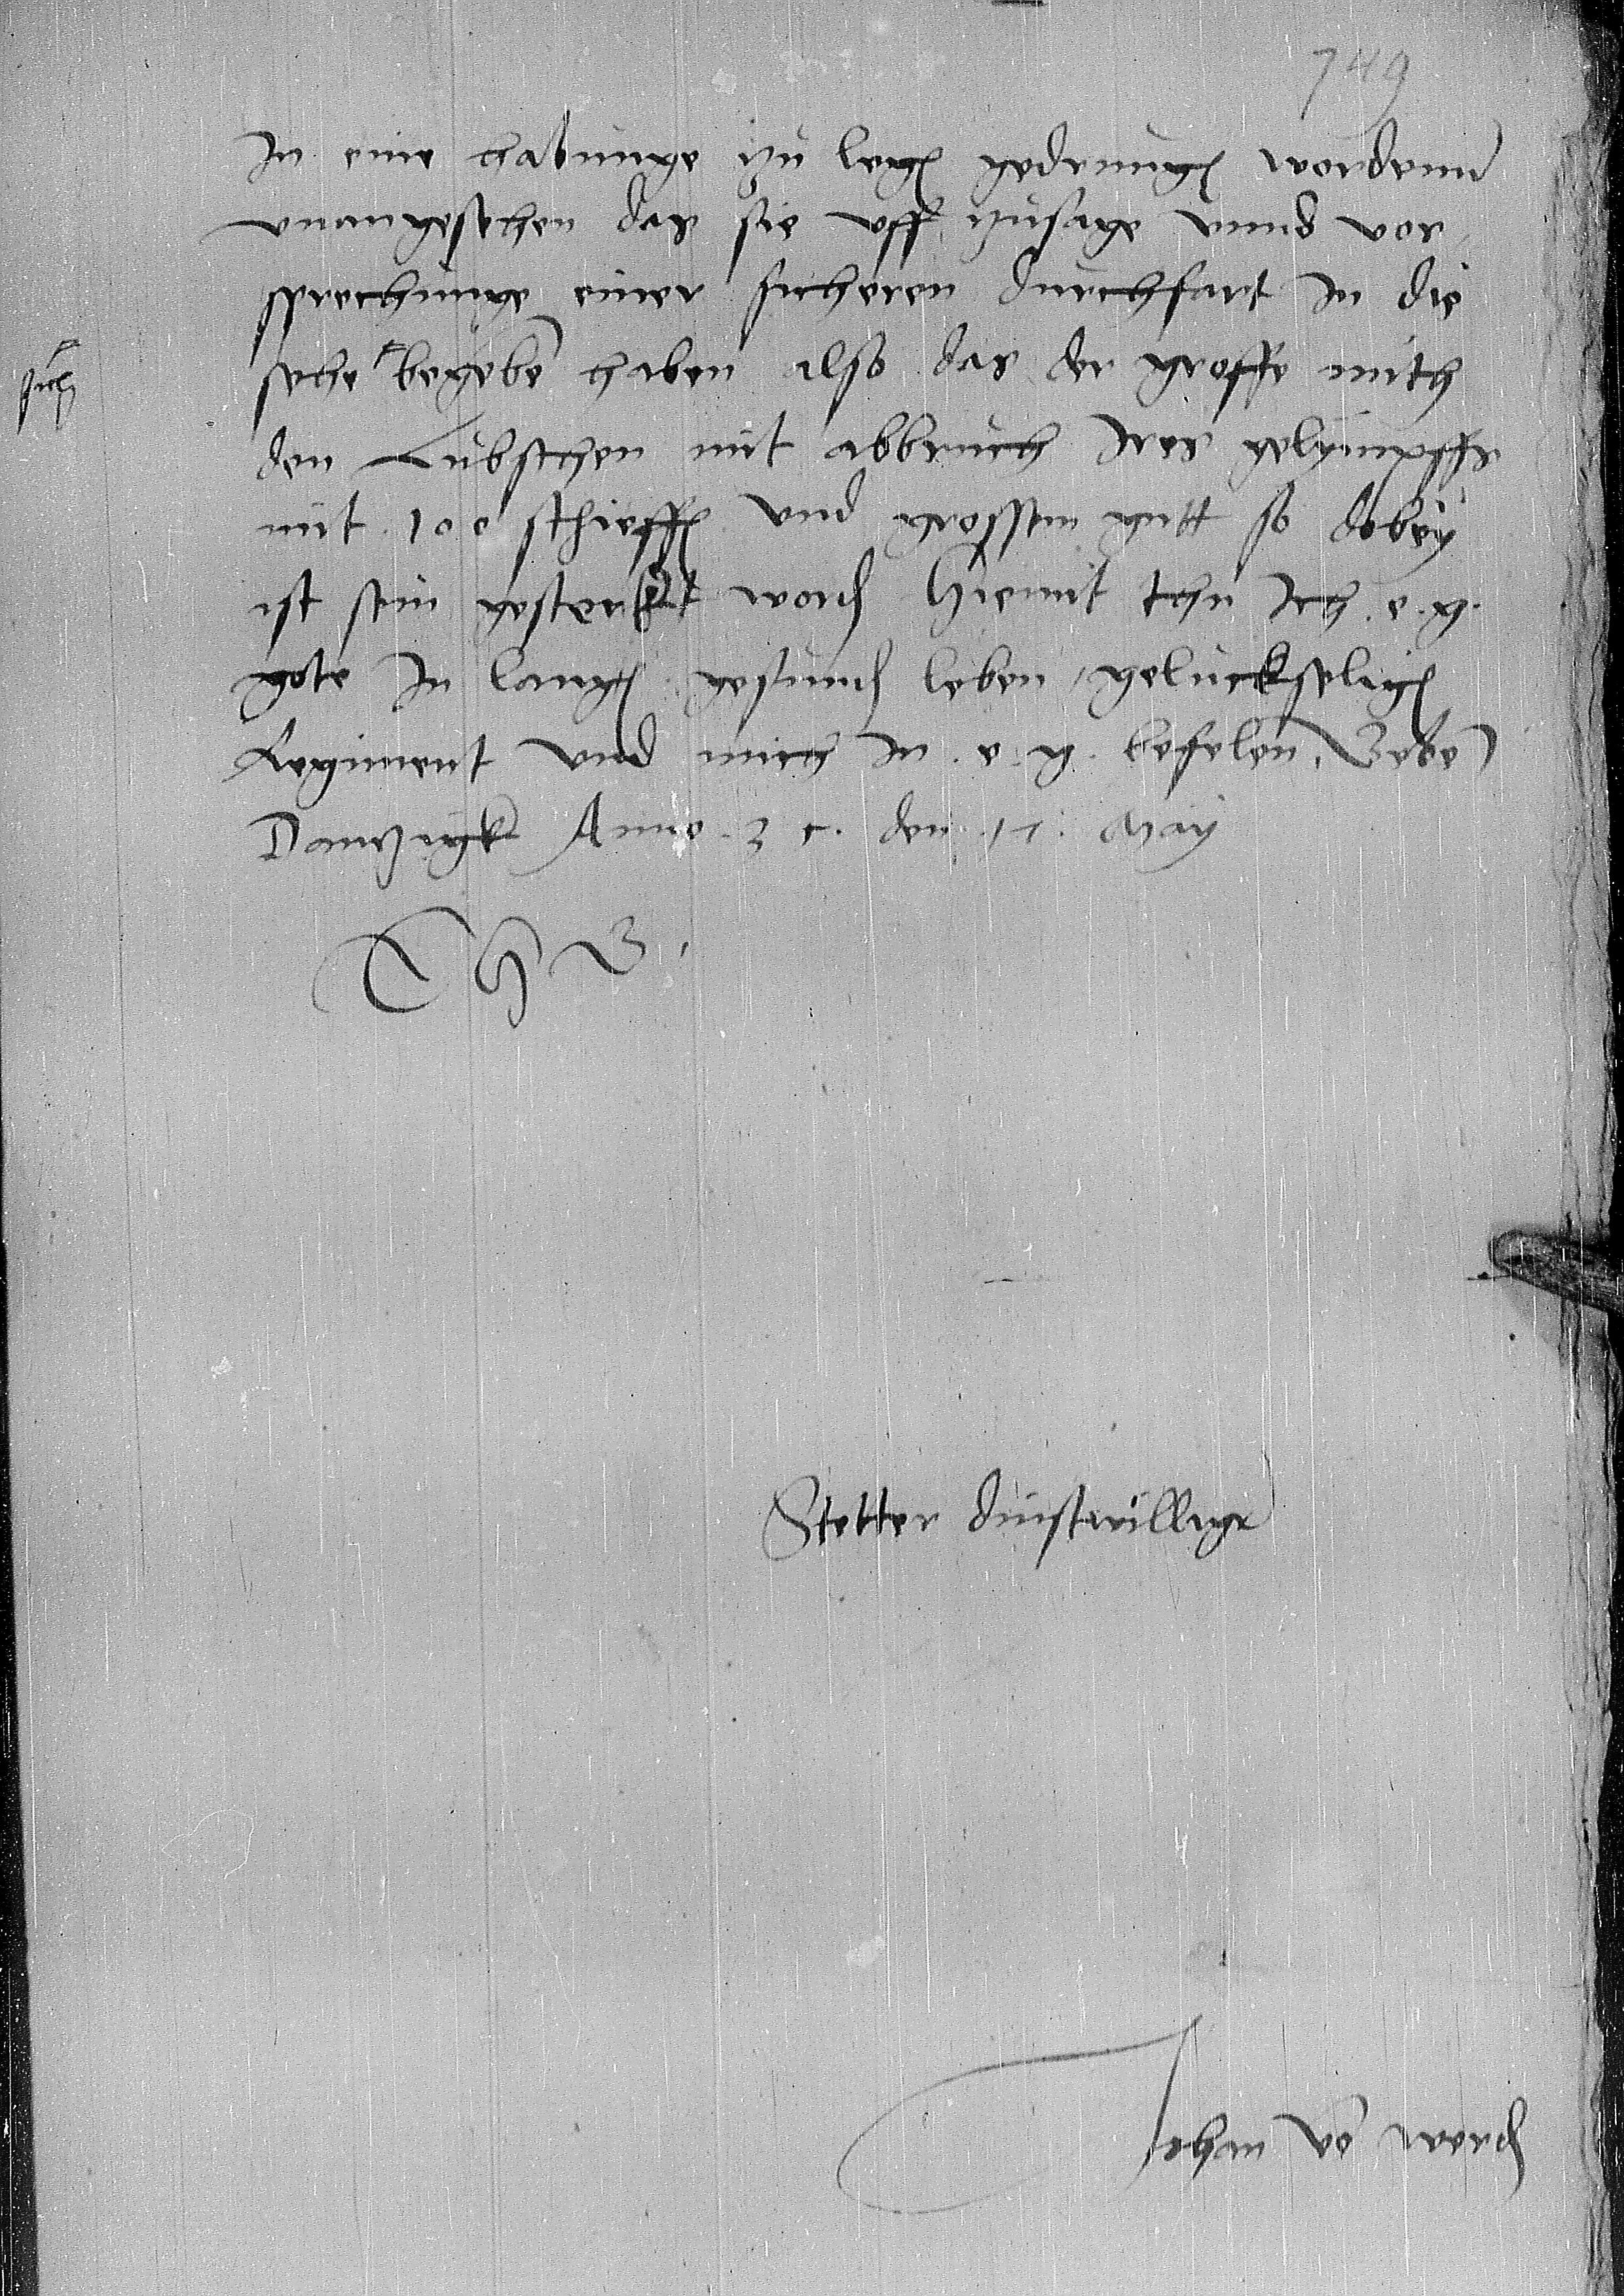 749
In eine habunge zu legen gedrungen wordenn
vnangesehen das sie vff zusage vnnd vor
sprechunge einer sicheren durchfart In die
sehe begeben haben also das der groffe mith
sich
den Lubschen mit abbruch Ires gelympffs
mit 100 schieffen vnd grossem gutt so dabey
ist sein gestercket worden Hiemit thu Ich e. g.
gote In langen gesunden leben, geluckseligen
Regiment vnd mich In e. g. befelen, Gebe
Dantzigk Anno 3 1. den 11. May
E G
Stetter dinstwilliger
Johan vō werden